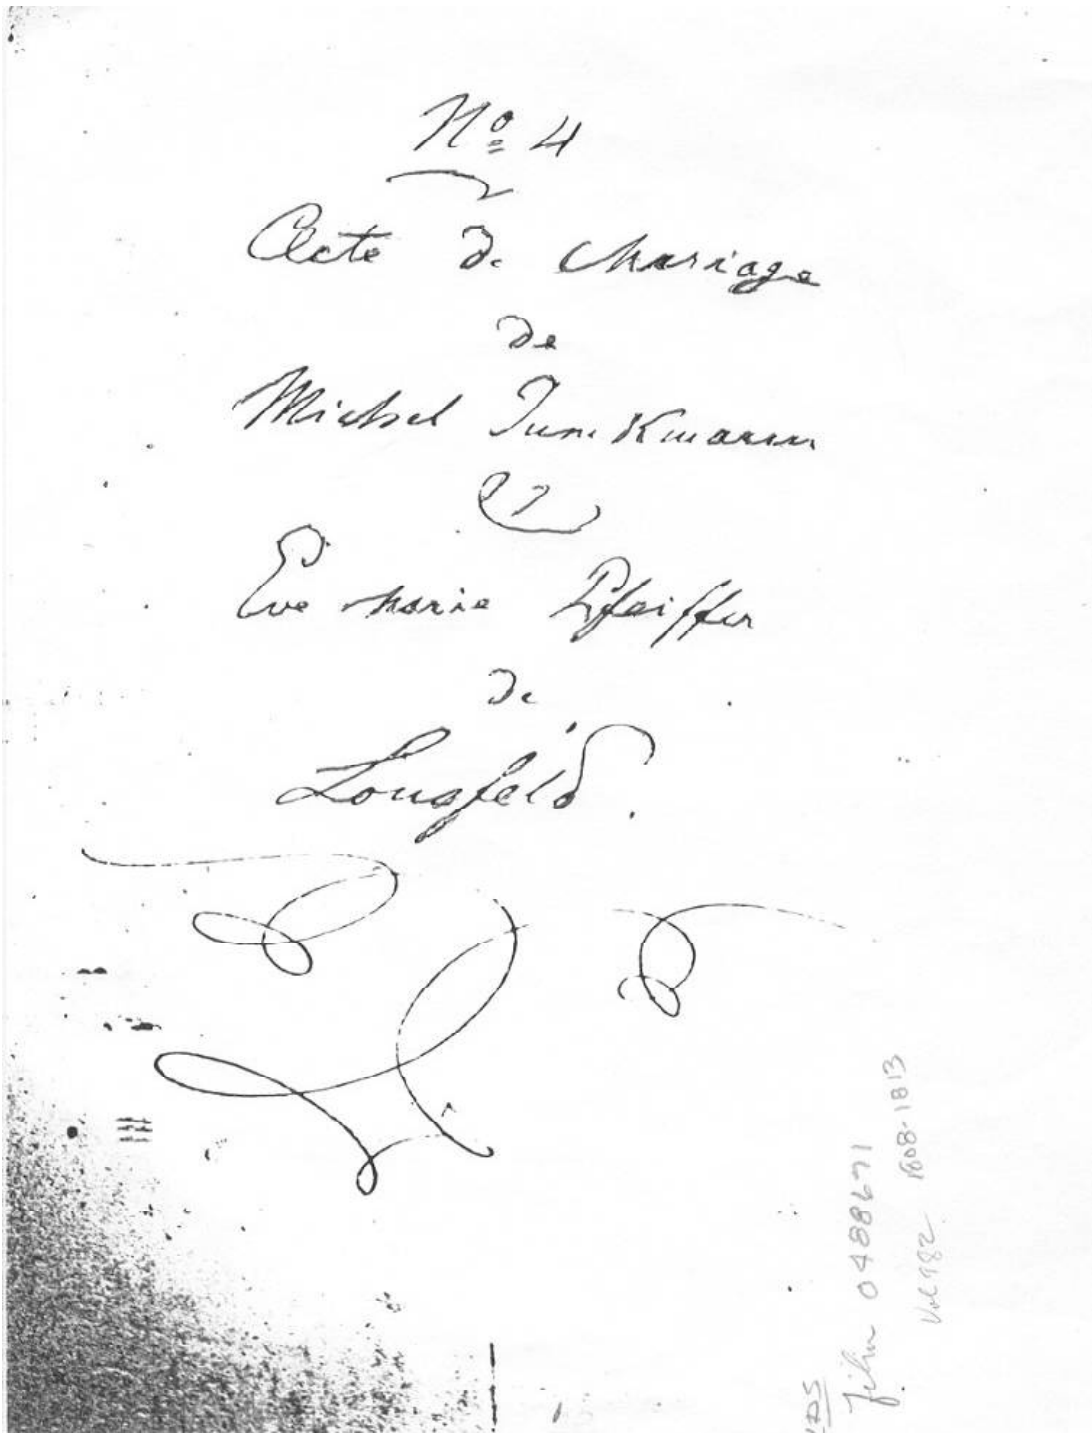 Nº 4
Acte de Mariage
de
Michel Junkmann
et
Eve Marie Pfeiffer
de
Longfeld.
film 0488671
Vol 982 1808-1813